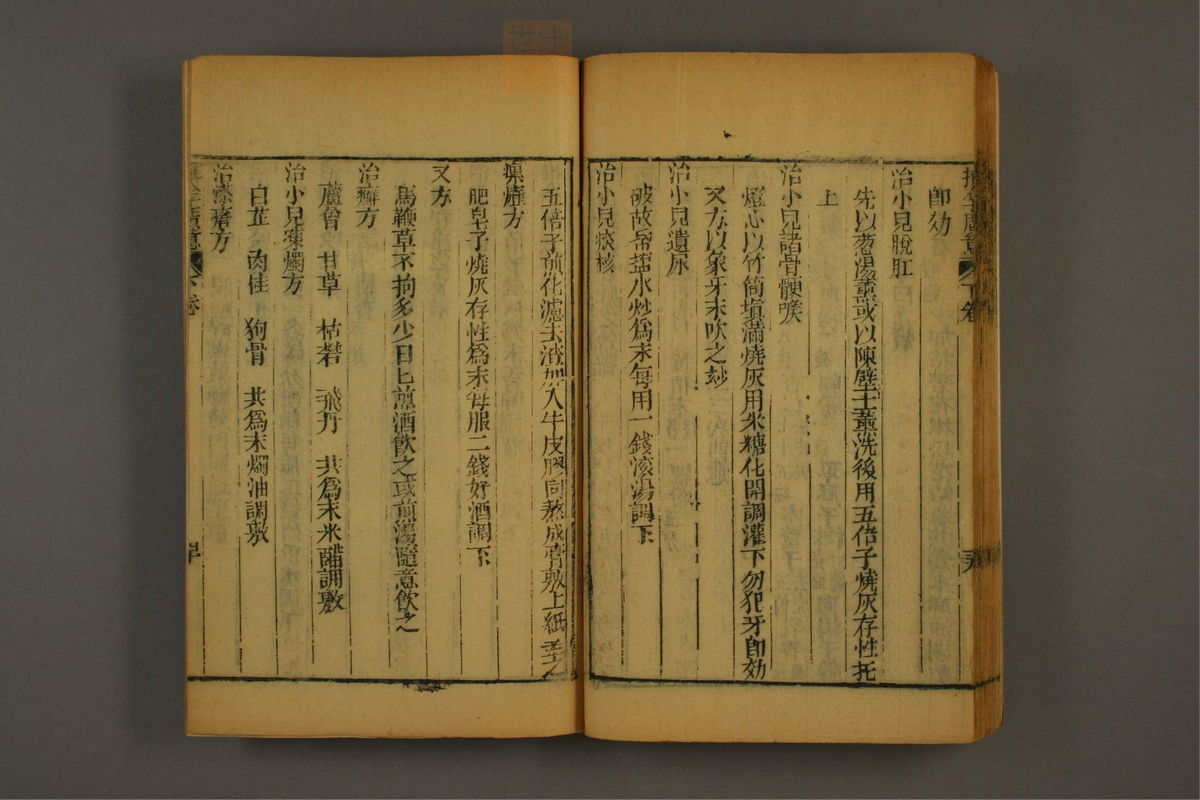 下卷
即効
治小兒脫肛
先以葱湯薰或以陳壁土薰洗後用五倍子燒灰存性托
上
治小兒諸骨骾喉
燈心以竹筒塡滿燒灰用米糖化開調灌下勿犯牙即効
又方以象牙末吹之玅
治小兒遺尿
破故帋塩水炒爲末每用一錢滾湯調下
治小兒痰核
五倍子煎化濾去渣加入牛皮膠同熬成膏敷上紙盖之
瘰癧方
肥皂子燒灰存性爲末每服二錢好酒調下
又方
馬鞭草不拘多少日七煎酒飲之或煎湯隨意飲之
治癬方
蘆薈 甘草 枯礬 飛丹 共爲末米醋調敷
治小兒凍燭方
白芷 肉桂 狗骨 共爲末燭油調敷
治瘡方
卷